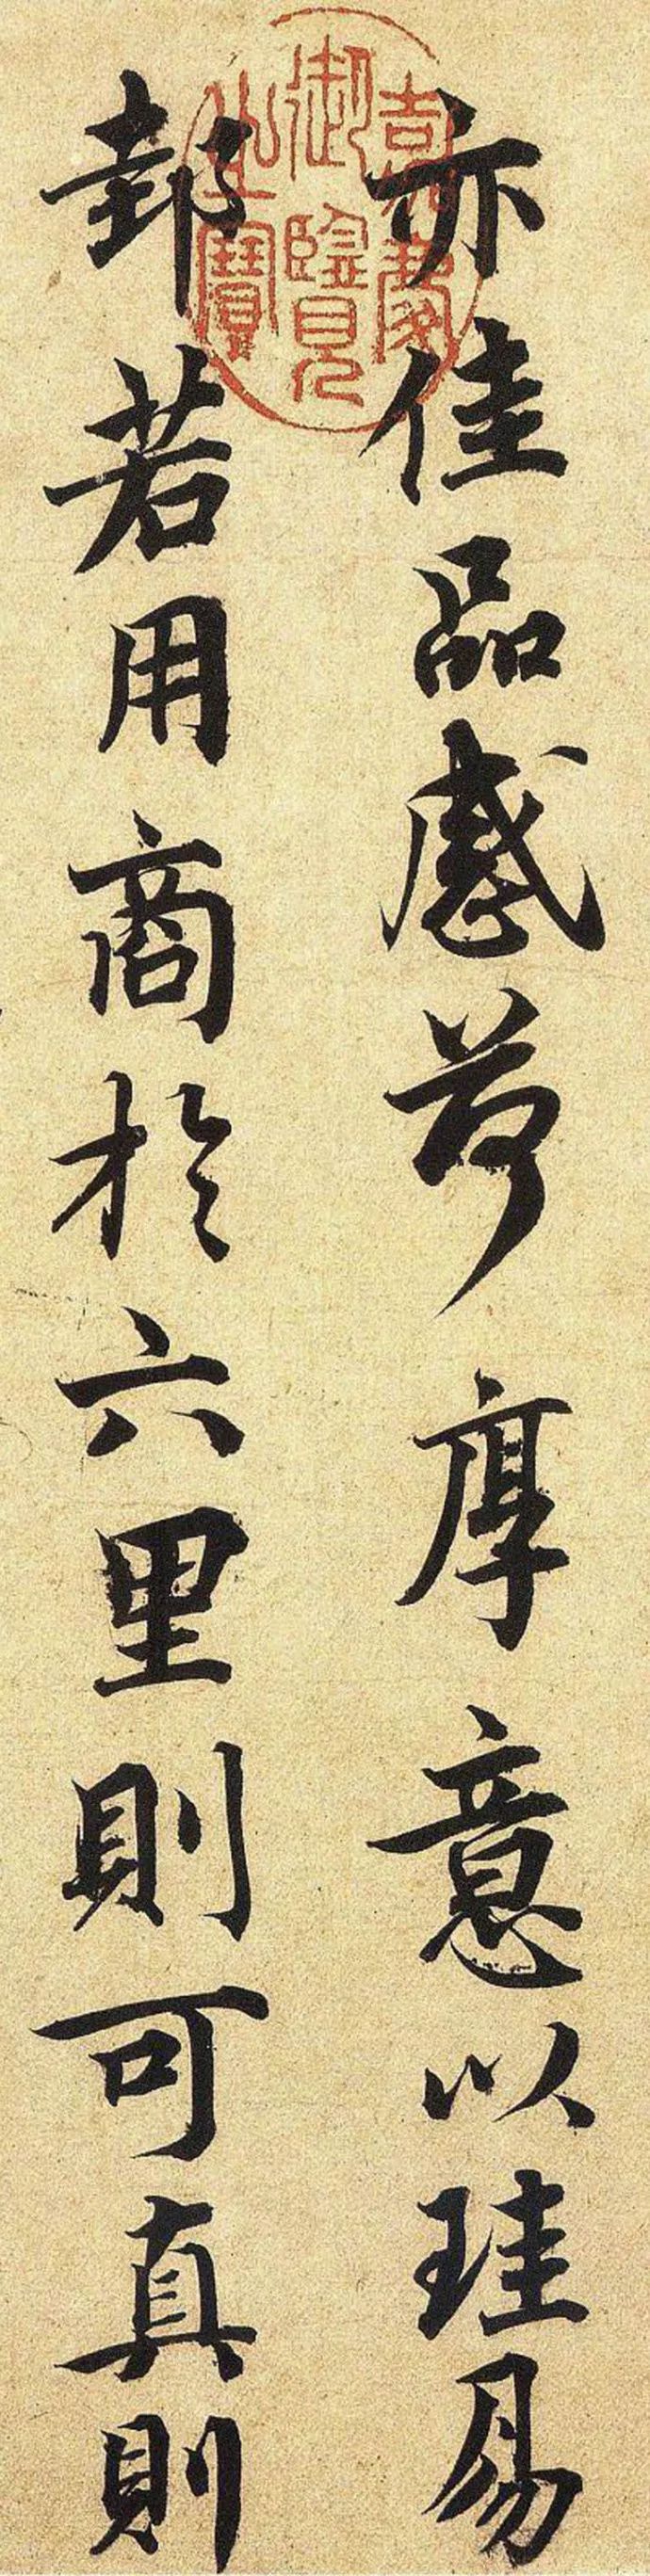 亦佳品感荷厚意以珪易
邽若用商於六里則可真則
嘉慶御覽之寶